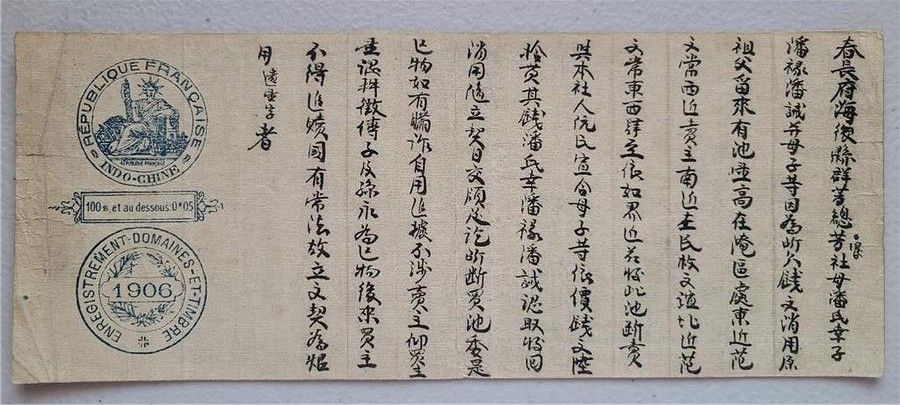 春長府海後縣群芳總芳浪社母潘氏幸子
潘祿潘誠并母子等因為所欠錢文消用原
祖父留來有池壹高在庵區處東近范
文常西近賣主南近氏枚文誼北近范
文常東西肆至依如界近茲將此池斷賣
與本社人阮氏宣仝母子等依價錢文陸
拾貫其錢潘氏幸潘祿潘誠認取將回
消用隨立契日交領足訖所斷買池委是
己物如有瞞詐自用追據不涉賣主仰買主
認耕徵傳子及孫永為己物後來買主
不得追贖國有常法故立文契為炤
用遠字者
RÉPUBLIQUE FRANÇAISE
INDO-CHINE
100$ et au dessous: 0$05
ENREGISTREMENT-DOMAINES-ET-TIMBRE
1906